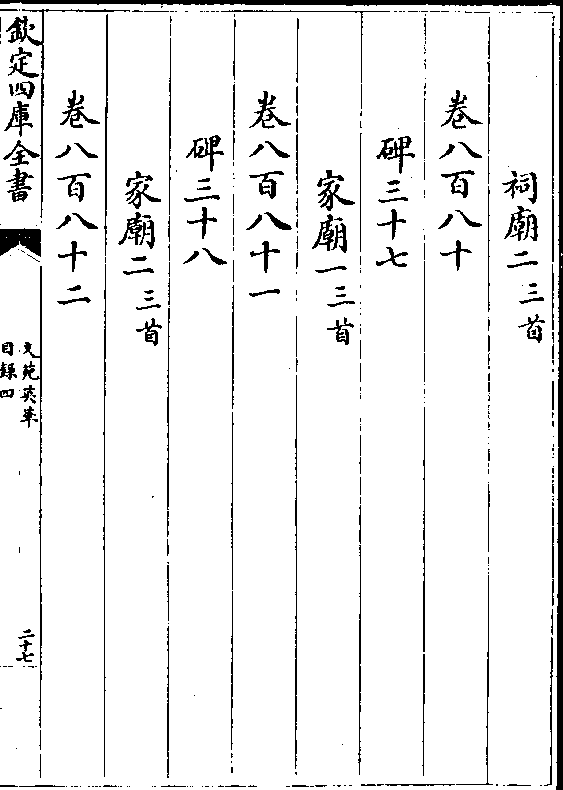 祠廟二 三首
卷八百八十
碑三十七
家廟一 三首
卷八百八十一
碑三十八
家廟二 三首
卷八百八十二
欽定四庫全書
文苑英華
目錄四
二十七